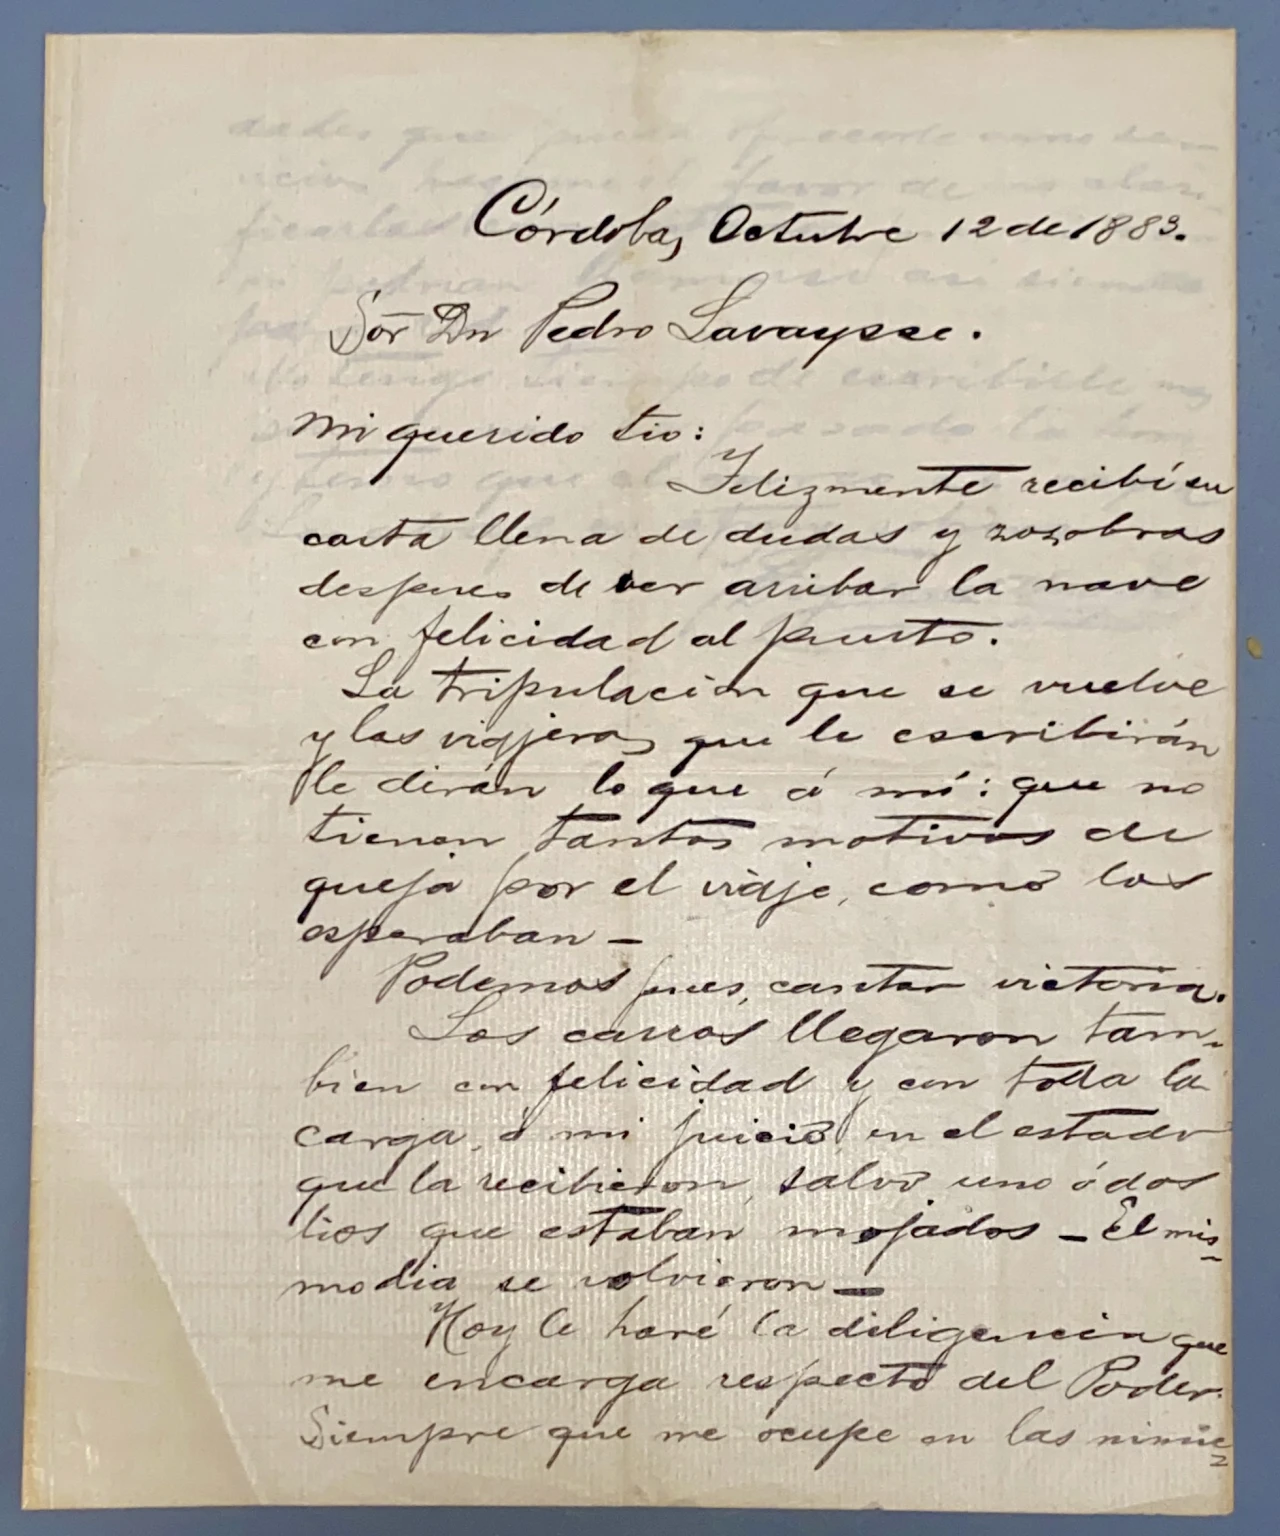 Córdoba, Octubre 12 de 1883.
Sor Dn Pedro Lavaysse.
Mi querido tio:
Felizmente recibí su
carta llena de dudas y zozobras
despues de ver arribar la nave
con felicidad al puerto.
La tripulacion que se vuelve
y las viajeras que le escribirán
le dirán lo que á mí: que no
tienen tantos motivos de
queja por el viaje, como los
esperaban —
Podemos pues, cantar victoria.
Los carros llegaron tam-
bien con felicidad y con toda la
carga, á mi juicio, en el estado
que la recibieron, salvo uno ó dos
lios que estaban mojados — El mis-
mo dia se volvieron —
Hoy le haré la diligencia que
me encarga respecto del Poder.
Siempre que me ocupe en las nimie-